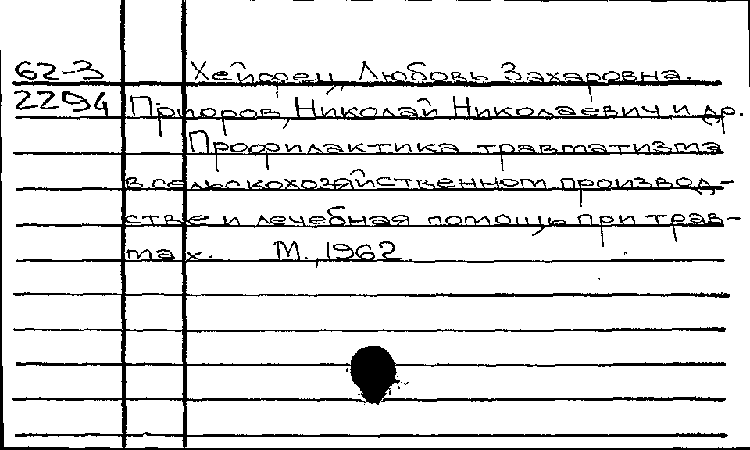 62-3 Хейфец, Любовь Захаровна.
2294 Приоров, Николай Николаевич и др.
Профилактика травматизма
в сельскохозяйственном производ-
стве и лечебная помощь при трав-
мах. М., 1962